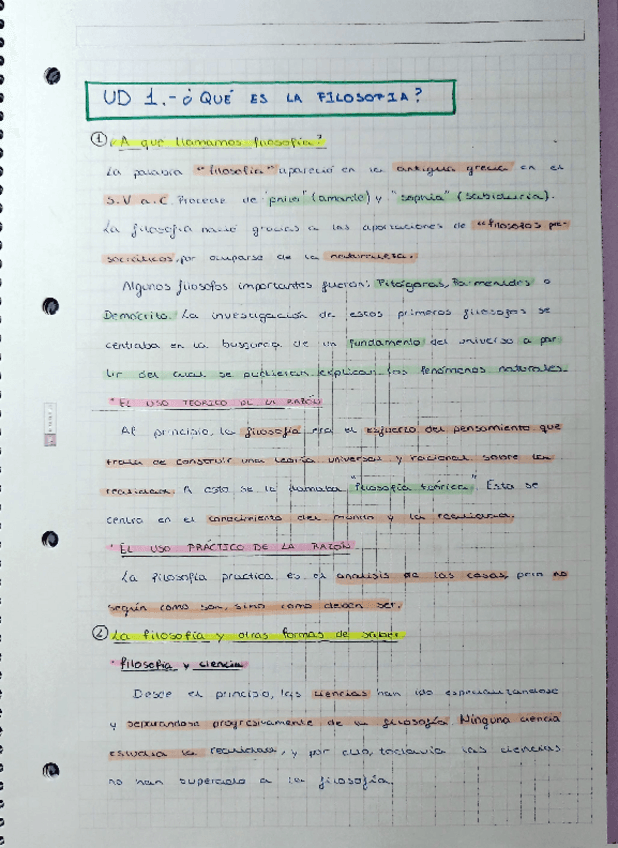 UD 1.- ¿QUÉ ES LA FILOSOFIA?
① ¿A que llamamos filosofía?
La palabra "filosofia" apareció en la antigua grecia en el
S.V a.C. Procede de "philei" (amante) y "sophia" (sabiduría).
La filosofia nació gracias a las aportaciones de "filosofos pre-
socráticos, por ocuparse de la naturaleza.
Algunos filosofos importantes fueron: Pitágoras, Parmenides o
Demócrito. La investigación de estos primeros filosofos se
centraba en la busqueda de un fundamento del universo a par
tir del cual se pudieran explicar los fenómenos naturales.
* EL USO TEORICO DE LA RAZÓN
Al principio, la filosofía era el esfuerzo del pensamiento que
trata de construir una teoría universal y racional sobre la
realidad. A esto se le llamaba "filosofía teórica". Esta se
centra en el conocimiento del mundo y la realidad.
* EL USO PRÁCTICO DE LA RAZÓN.
La filosofía practica es el analisis de las cosas, pero no
según como son, sino como deben ser.
② La filosofía y otras formas de saber
* filosofía y ciencia
Desde el principio, las ciencias han ido especializandose
y separandose progresivamente de la filosofía. Ninguna ciencia
estudia la realidad, y por ello, todavia las ciencias
no han superado a la filosofía.